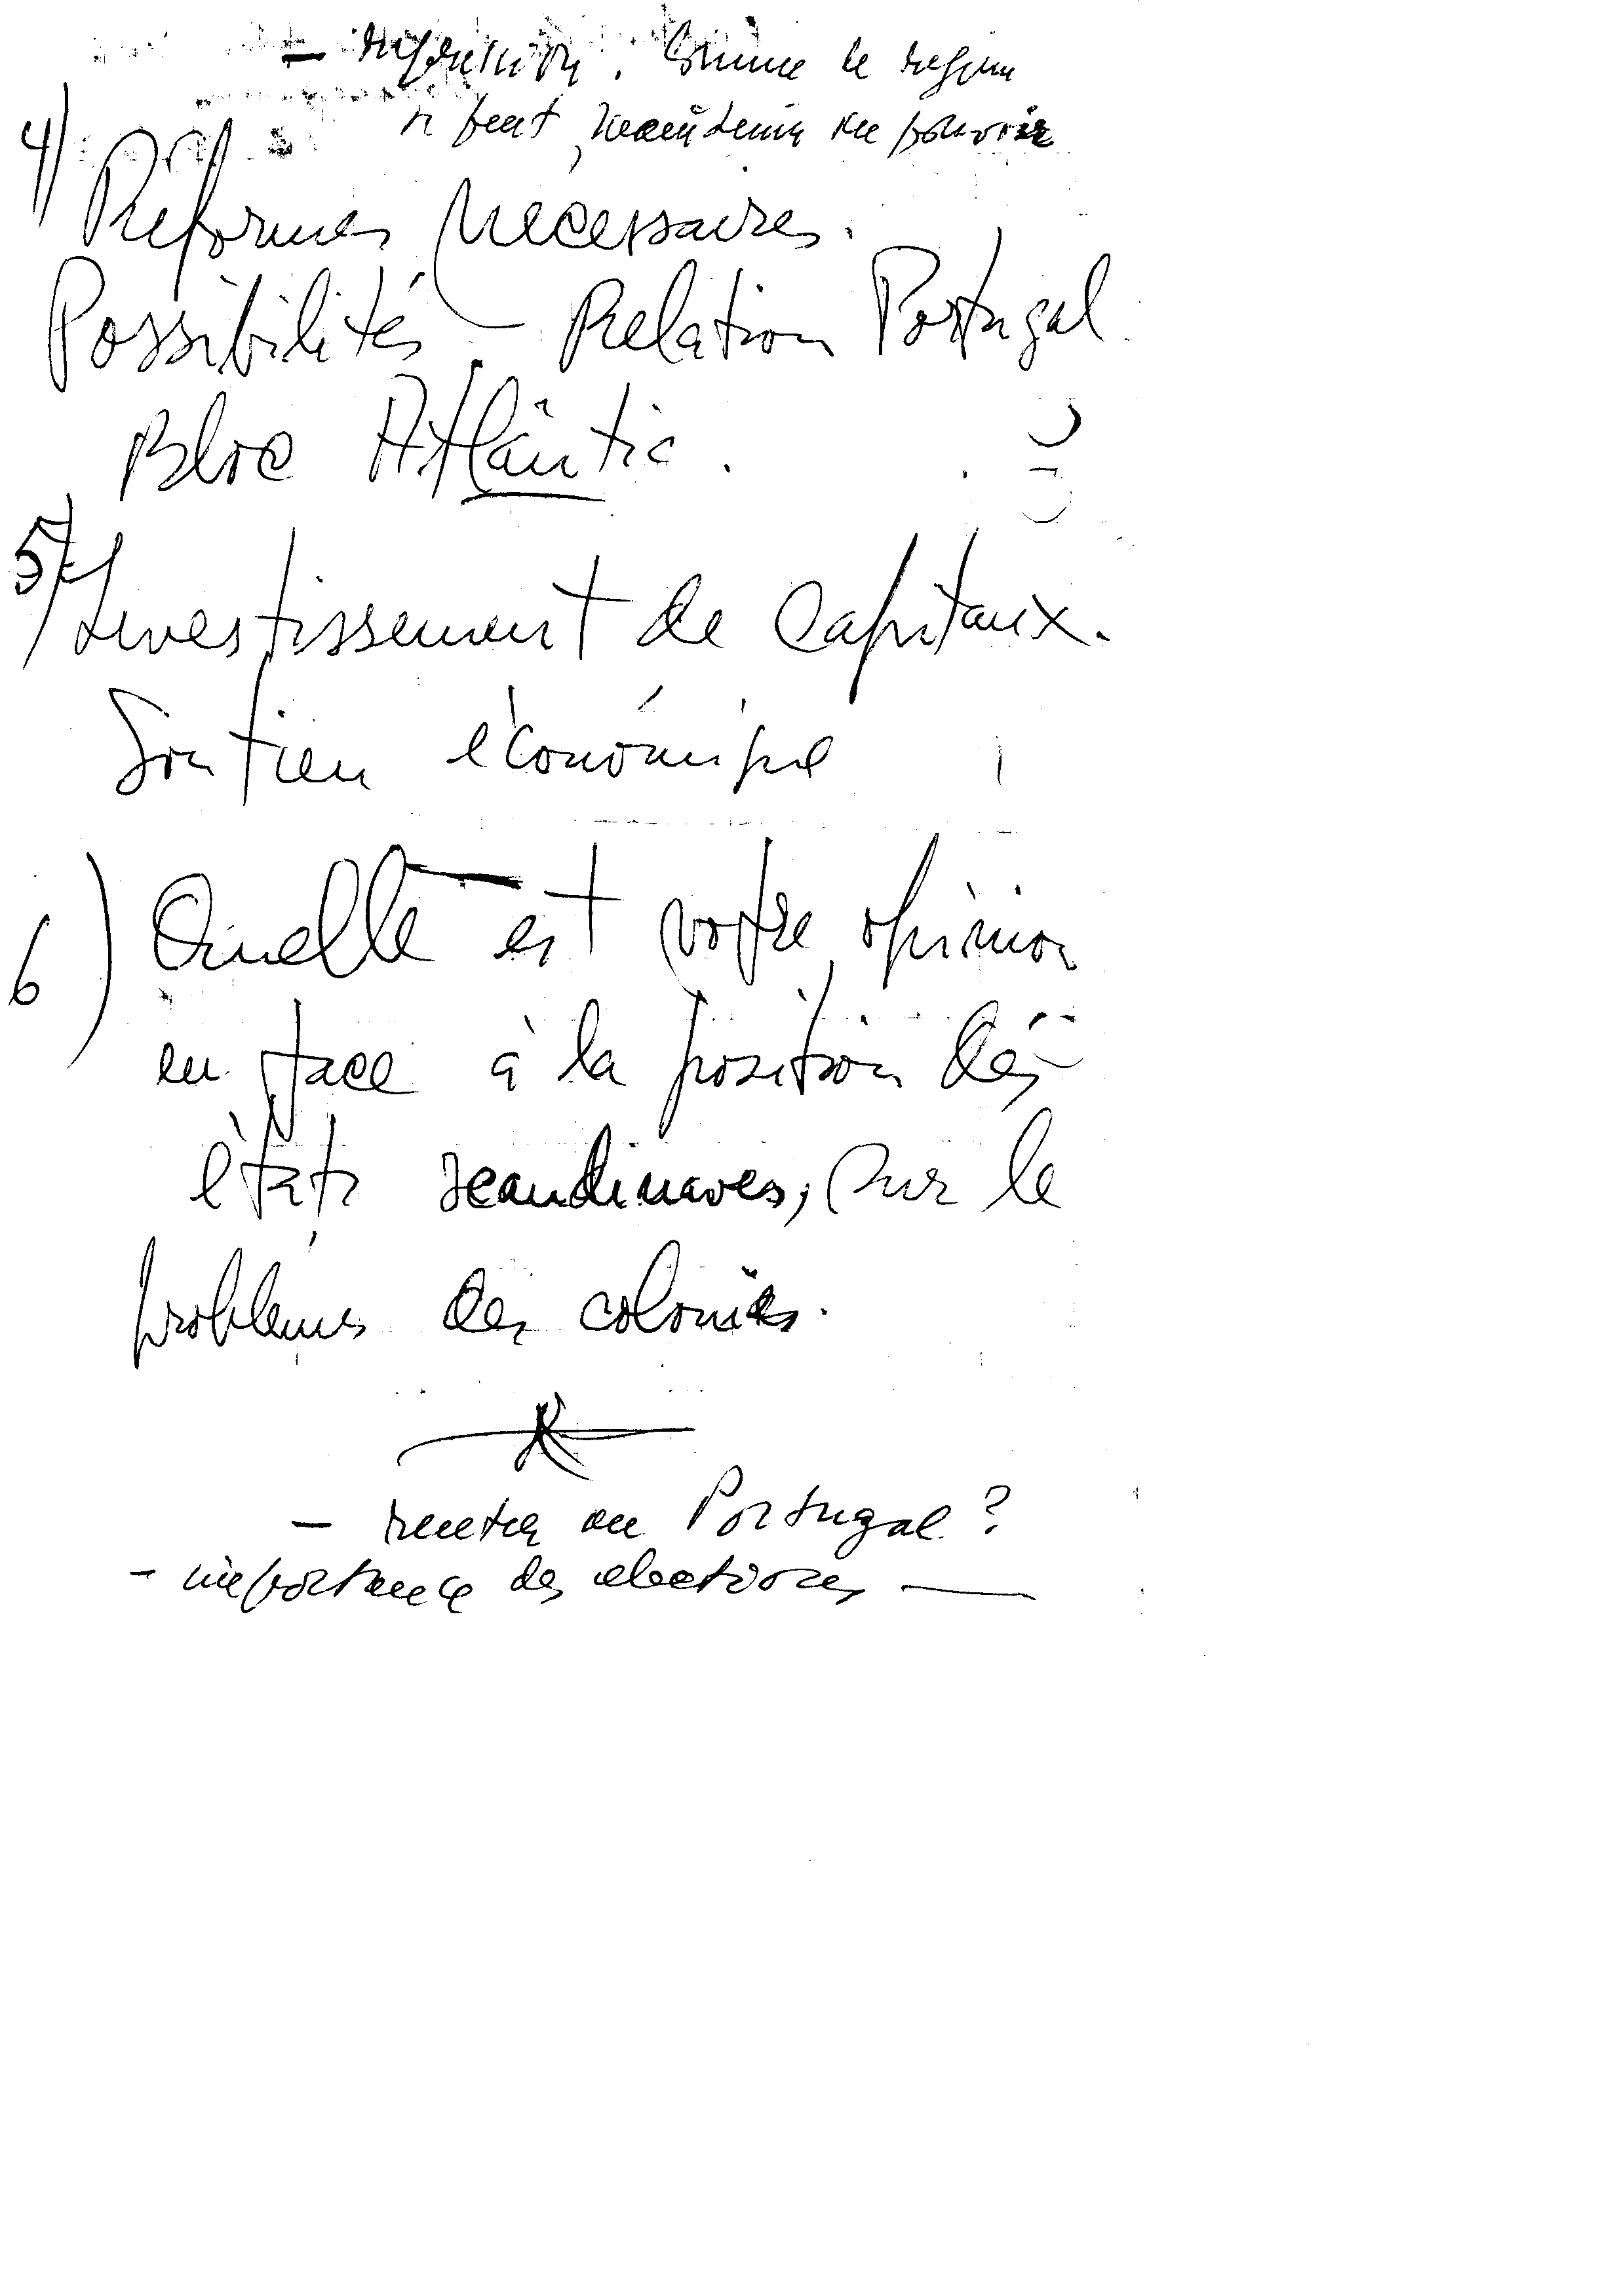 — repression. Comme le regime
se peut maintenir au pouvoir
4) Réformes nécessaires.
Possibilités – Relation Portugal.
Bloc Atlântic.
5) Investissement de Capitaux.
Soutien économique
6) Quelle est votre opinion
en face à la position des
états scandinaves, sur le
problèmes des colonies.
— rentrer au Portugal?
- importance des elections —